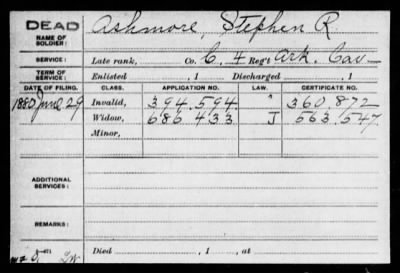 DEAD Ashmore, Stephen R
NAME OF SOLDIER:
SERVICE: Late rank, Co. C, 4 Reg't Ark. Cav
TERM OF SERVICE: Enlisted , 1 Discharged , 1
DATE OF FILING. CLASS. APPLICATION NO. LAW. CERTIFICATE NO.
1880 June 29 Invalid, 394.594 360.872
Widow, 686 433 J 563.547
Minor,
ADDITIONAL SERVICES:
REMARKS:
Died , 1 , at